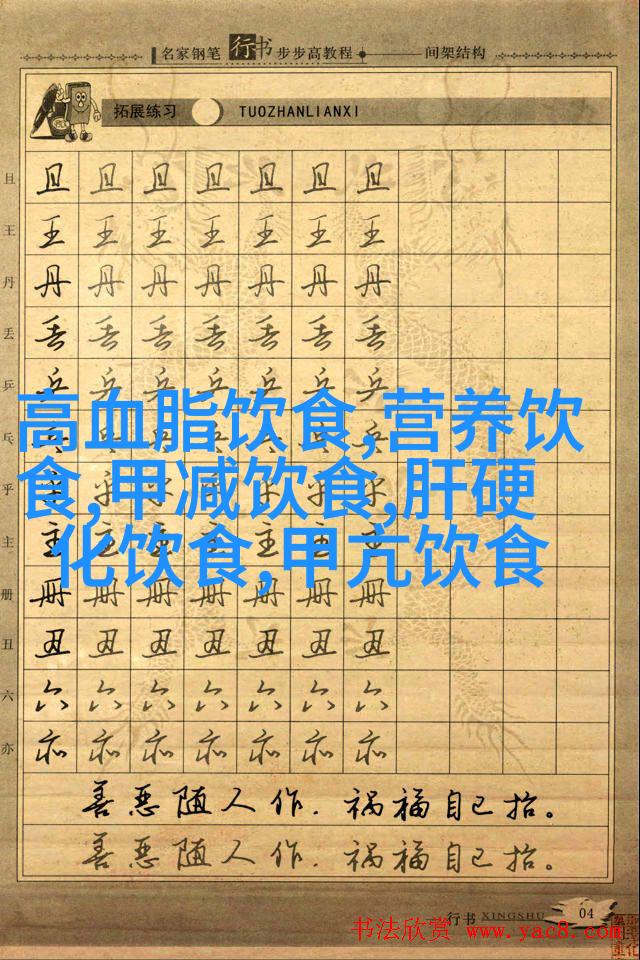 名家钢笔行书步步高教程 间架结构
拓展练习 TUOZHANLIANXI
且 且 且 且 且 且 且 且
王 王 王 王 王 王 王 王
丹 丹 丹 丹 丹 丹 丹 丹
丢 丢 丢 丢 丢 丢 丢 丢
乒 乒 乒 乒 乒 乒 乒 乒
高血脂饮食,营养饮
乓
食,甲减饮食,肝硬
乎
化饮食,甲亢饮食
主 主 主 主 主 主 主 主
册 册 册 册 册 册 册 册
丑 丑 丑 丑 丑 丑 丑 丑
六 六 六 六 六 六 六 六
亦 亦 亦 亦 亦 亦 亦 亦
善恶随人作.祸福自己招。
善恶随人作.祸福自己招。
行书 XINGSHU 04
书法欣赏 www.yac8.com